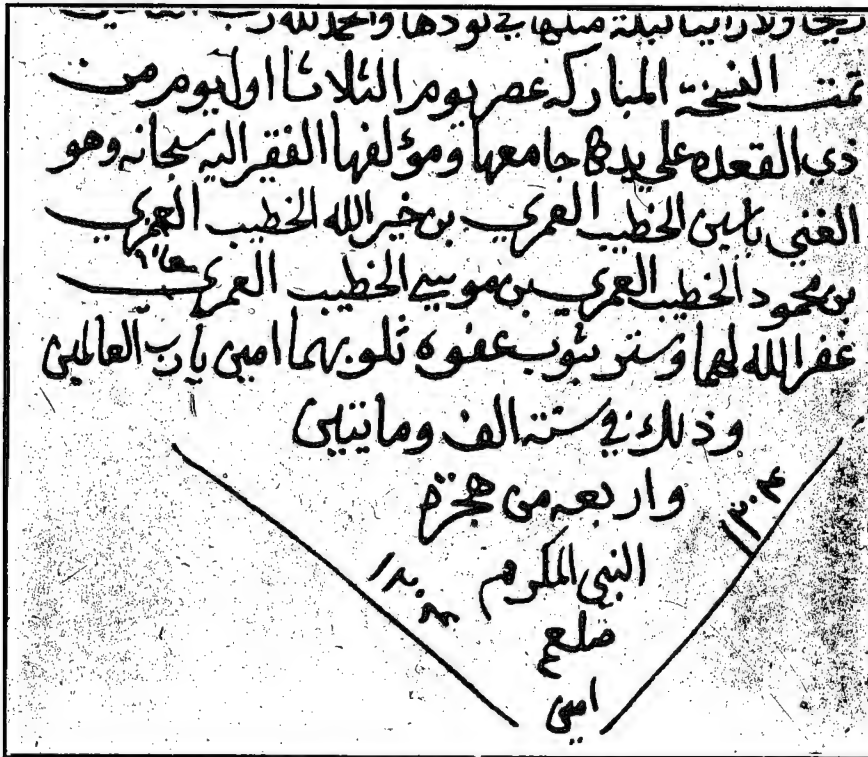 ريحا ولا رأينا ليلة مثلها في نودها والحمد لله رب العالمين
تمت النسخة المباركه عصر يوم الثلاثا اول يوم من
ذي القعده علي يد جامعها ومؤلفها الفقير اليه سبحانه وهو
الغني ياسين الخطيب العمري بن خير الله الخطيب العمري
بن محمود الخطيب العمري بن موسي الخطيب العمري
غفر الله لهما وستر بثوب عفوه ذنوبهما امين يا رب العالمين
وذلك في سنة الف ومايتين
واربعه من هجرة
النبي المكرم
صلعم
امين
١٢٠٤
١٢٠٤